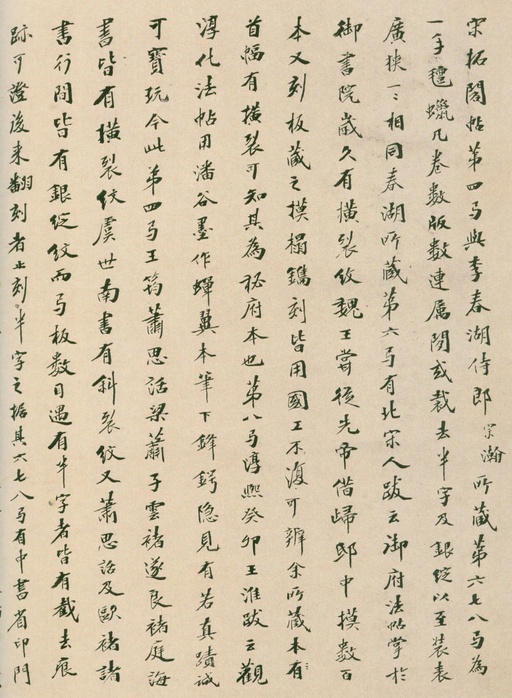 宋拓閣帖第四弓與李春湖侍郎宗瀚所藏第六七八弓為
一手氊蠟凡卷數版數連屬閒或裁去半字及銀錠以至裝表
廣狹一一相同春湖所藏第六弓有北宋人跋云御府法帖掌於
御書院歲久有橫裂紋魏王嘗從先帝借歸邸中摸數百
本又刻板藏之摸搨鐫刻皆用國工不復可辨余所藏本有
首幅有橫裂可知其為秘府本也第八弓淳熙癸卯王淮跋云觀
淳化法帖用潘谷墨作蟬翼本筆下鋒鍔隐見有若真蹟誠
可寶玩今此第四弓王筠蕭思話梁蕭子雲褚遂良褚庭誨
書皆有橫裂紋虞世南書有斜裂紋又蕭思話及歐褚諸
書行間皆有銀錠紋而弓板數目遇有半字者皆有截去痕
跡可證後來翻刻者止刻半字之據其六七八弓有中書省印門